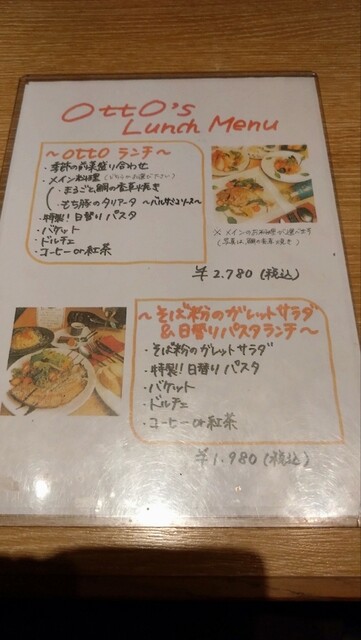 OttO's
Lunch Menu
～otto ランチ～
・季節の前菜盛り合わせ
・メイン料理（どちらかお選び下さい）
・まるごと鯛の香草焼き
・もち豚のタリアータ ～バルサミコソース～
・特製!日替りパスタ
・バケット
・ドルチェ
・コーヒーor紅茶
※メインのお料理が選べます
(写真は、鯛の香草焼き)
¥2.780(税込)
～そば粉のガレットサラダ
&日替りパスタランチ～
・そば粉のガレットサラダ
・特製!!日替りパスタ
・バケット
・ドルチェ
・コーヒーor紅茶
¥1.980(税込)